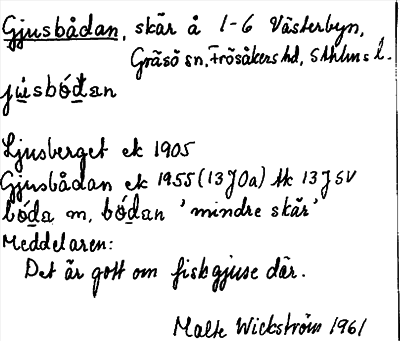 Gjusbådan, skär å 1-6 Västerbyn,
Gräsö sn, Frösåkers hd, Sthlms l.
jùsbóđan
Ljusberget ek 1905
Gjusbådan ek 1955 (13J0a) tk 13J5V
bóđa m, bóđan 'mindre skär'
Meddelaren:
Det är gott om fiskgjuse där.
Malte Wickström 1961